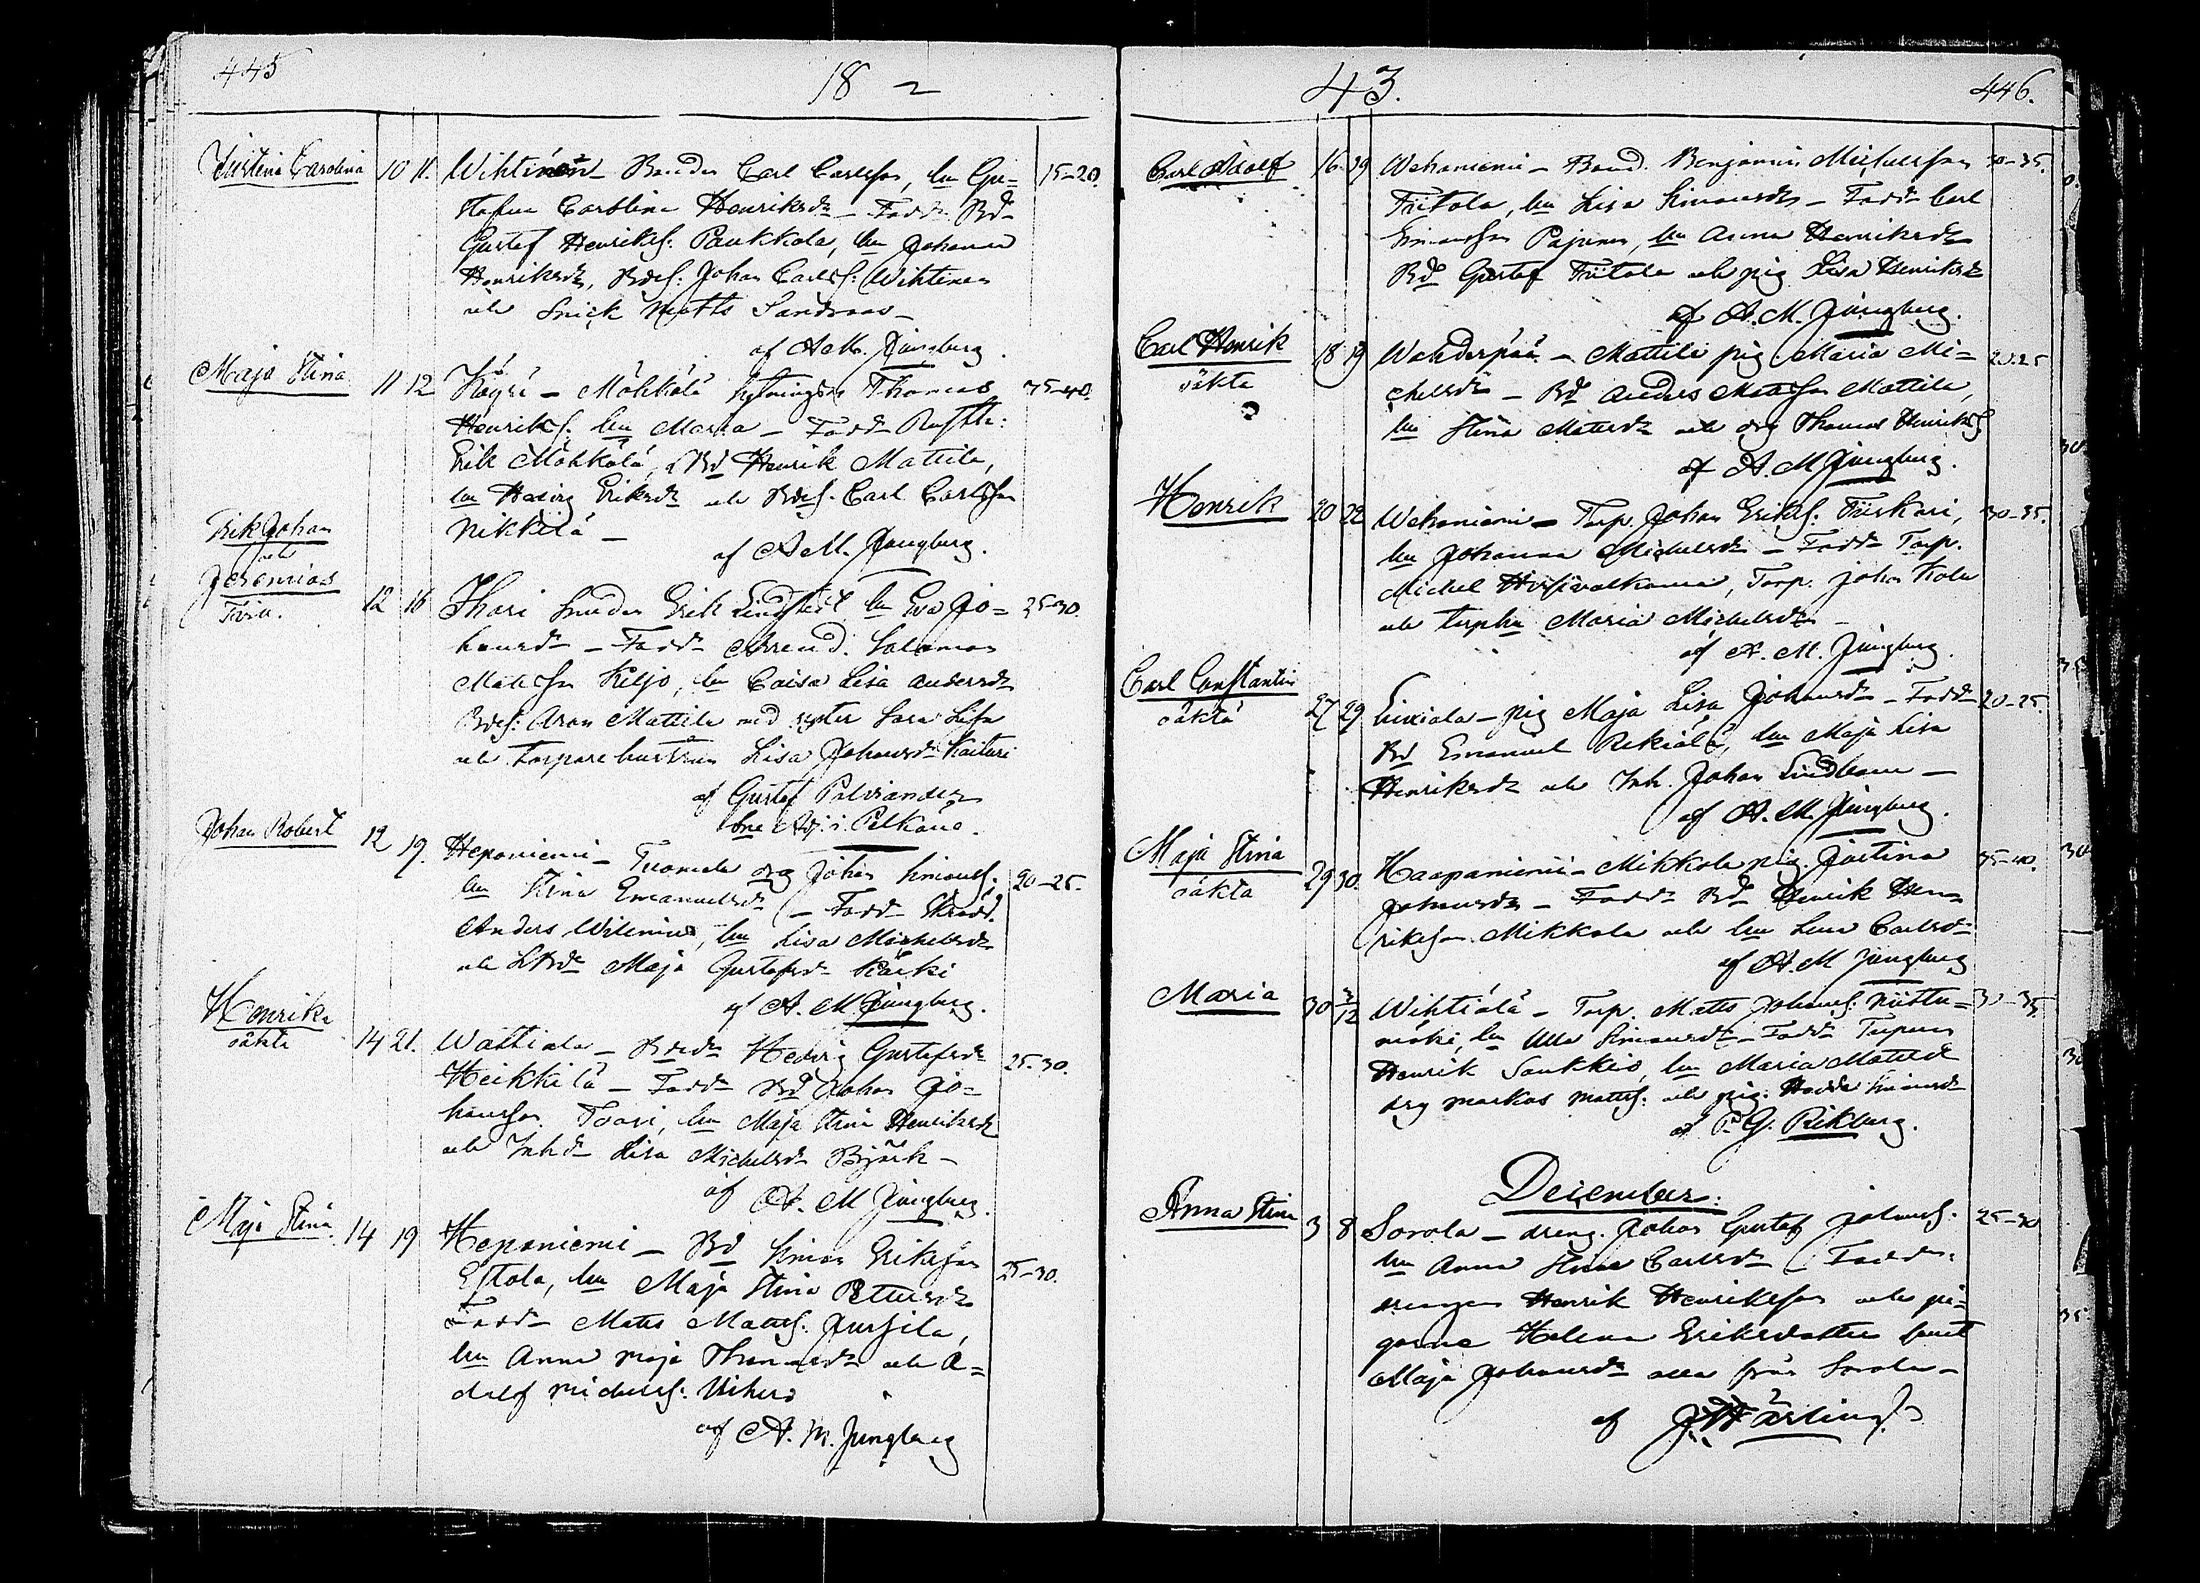 445
18 43.
446.
Justina Carolina 10 11. Wihtinen Bonden Carl Carlsson, hu Gu= 15-20.
stafva Carolina Henriksdr – Fadd. Bd
Gustaf Henriks. Paukkola, hu Johanna
Henriksdr, Bdes. Johan Carls. Wihtinen
och Matts Sandroos –
af A. M. Jungberg.
Maja Stina 11 12 – Möhkölä Thomas 35-40.
Henriks. hu Maria – Fadd.
Erik Möhkölä, Bd Henrik Mattila,
hu Hedvig Eriksdr och Bdes. Carl Carlsson
Nikkilä –
af A. M. Jungberg.
Erik Johan
och
Jeremias 12 16 Erik Lindstedt hu Eva Jo= 25-30.
Tvill.
hansdr – Fadd Arrend. Salomon
Mattsson Keljo, hu Caisa Lisa Andersdr
Bdes. Aron Mattila med syster Sara Lisa
och Torpare hustrun Lisa Johansdr
af Gustaf Palviander
i Pelkäne.
Johan Robert 12 19. Heponiemi – Tuomela drg Johan Simons. 20-25.
hu Stina Emanuelsdr – Fadd Skrädd.
Anders Wilenius, hu Lisa Michelsdr
och Maja Gustafsdr Kärki
af A. M. Jungberg.
Henrika
oäkta 14 21. Wattiala – Bdedr Hedvig Gustafsdr 25-30.
Heikkilä – Fadd Bd Johan Jo=
hansson Toori, hu Maja Stina Henriksdr
och Inhdr Lisa Michelsdr Björk –
af A. M Jungberg.
Maja Stina. 14 19 Heponiemi – Bd Simon Eriksson 25-30.
Estola, hu Maja Stina Pettersdr
Fadd Matts Matts. Jussila,
hu Anna Maja Thomasdr och A=
dolf Michels.
af A. M. Jungberg
Carl Adolf 16 19 Wehoniemi – Bond. Benjamin Michelsson 30-35.
Tritola, hu Lisa Simonsdr – Fadd Carl
Simonsson Pajunen, hu Anna Henriksdr
Bd Gustaf Tritola och pig Lisa Henriksdr
af A. M. Jungberg.
Carl Henrik
oäkta 18 19 – Mattila pig Maria Mi= 20-25
chelsdr – Bd Anders Mattsson Mattila,
hu Stina Mattsdr och drg Thomas Henriks.
af A. M Jungberg.
Henrik 20 22 Wehoniemi – Torp. Johan Eriks. 30-35.
hu Johanna Michelsdr – Fadd Torp.
Michel Torp. Johan
och Maria Michelsdr –
af A. M. Jungberg.
Carl Constantin
oäkta 27 29 – pig Maja Lisa Johansdr – Fadd 20-25.
Bd Emanuel Rekiälä, hu Maja Lisa
Henriksdr och Inh. Johan Lindbom –
af A. M. Jungberg.
Maja Stina
oäkta 29 30. Haapaniemi – Mikkola pig Justina 35-40.
Johansdr – Fadd Bd Henrik Hen=
riksson Mikkola och hu Lena Carlsdr
af A. M Jungberg
Maria 30 3/12 Wihtiälä – Torp. Matts Johans. Niittu= 30-35.
mäki, hu Ulla Simonsdr – Fadd Torparen
Henrik Saukkio, hu Maria Mattsdr
drg Markus Matts. och pig. Hedda Simonsdr
af P. G. Rikberg.
December.
Anna Stina 3 8 Sorola – dreng. Johan Gustaf Johans. 25-30
hu Anna Stina Carlsdr – Fadd.
drengen Henrik Henriksson och pi=
gorna Helena Eriksdotter samt
Maja Johansdr alla från Sorola –
af